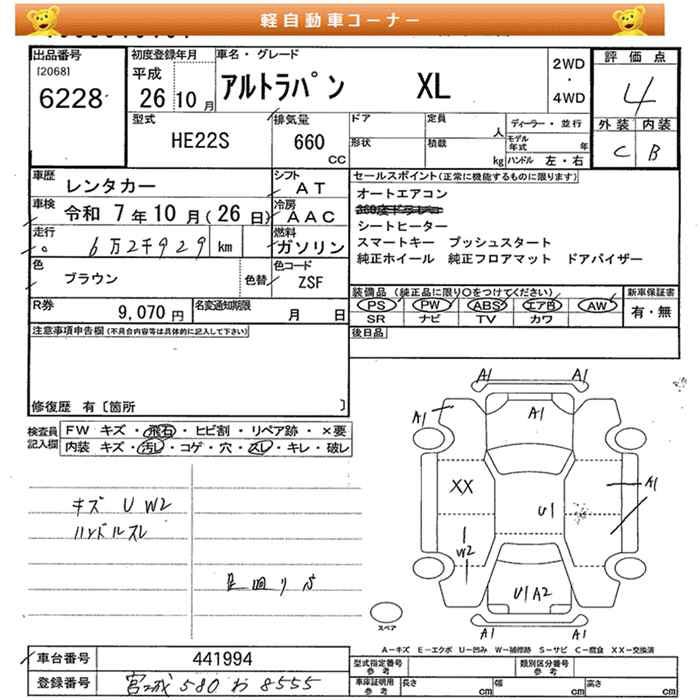 軽自動車コーナー
出品番号
[2068]
6228
初度登録年月
平成
26 10 月
車名・グレード
アルトラパン XL
2WD
・
4WD
評価点
4
外装 内装
C B
型式
HE22S
排気量
660
CC
ドア
形状
定員
人
積載
kg
ディーラー・並行
モデル年式 年
ハンドル 左・右
車歴
レンタカー
シフト
AT
車検
令和 7年10月(26日)
冷房
AAC
走行
6万2千929 km
燃料
ガソリン
色
ブラウン
色替
色コード
ZSF
R券
9,070円
名変通知期限
月 日
セールスポイント(正常に機能するものに限ります)
オートエアコン
シートヒーター
スマートキー プッシュスタート
純正ホイール 純正フロアマット ドアバイザー
装備品 (純正品に限り○をつけてください)
PS PW ABS エアB AW
SR ナビ TV カワ
新車保証書
有・無
後日品
注意事項申告欄(不具合内容等は具体的に記入して下さい)
修復歴 有 [箇所 ]
検査員記入欄
FW キズ・飛石・ヒビ割・リペア跡・×要
内装 キズ・汚レ・コゲ・穴・スレ・キレ・破レ
キズ U W2
ハンドルスレ
足回りサ
A1 A1
A1
A1
XX
A1
U1
W2
U1 A2
A1 A1
スペア
A-キズ E-エクボ U-凹み W-補修跡 S-サビ C-腐食 XX-交換済
車台番号
441994
登録番号
宮城 580 わ 8555
型式指定番号
参考
類別区分番号
参考
車庫証明用
参考
長さ cm
幅 cm
高さ cm